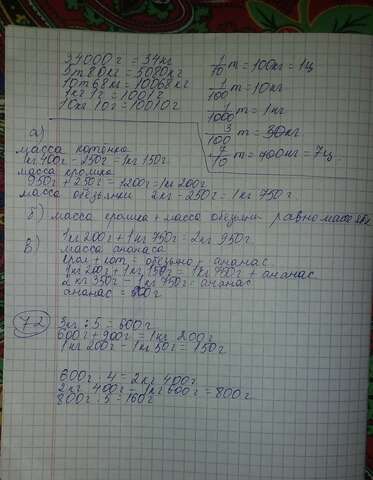 34000г = 34кг
5т80кг = 5080кг
10т68кг = 10068кг
1кг 1г = 1001г
10кг 10г = 10010г
1/10 т = 100кг = 1ц
1/100 т = 10кг
1/1000 т = 1кг
3/100 т = 30кг
7/10 т = 700кг = 7ц
а)
масса котёнка
1кг 400г - 250г = 1кг 150г
масса крошка
950г + 250г = 1200г = 1кг 200г
масса обезьянки 2кг - 250г = 1кг 750г
б) масса крошка + масса обезьяни равно масса
1кг 200г + 1кг 750г = 2кг 950г
в) масса ананаса
крош + кот = обезьяно + ананас
1кг 200г + 1кг 150г = 1кг 750г + ананас
2кг 350г = 1кг 750г + ананас
ананас = 600г
72
3кг : 5 = 600г
600г + 600г = 1кг 200г
1кг 200г - 1кг 50г = 150г
600г · 4 = 2кг 400г
2кг 400г - 1кг 600г = 800г
800г : 5 = 160г